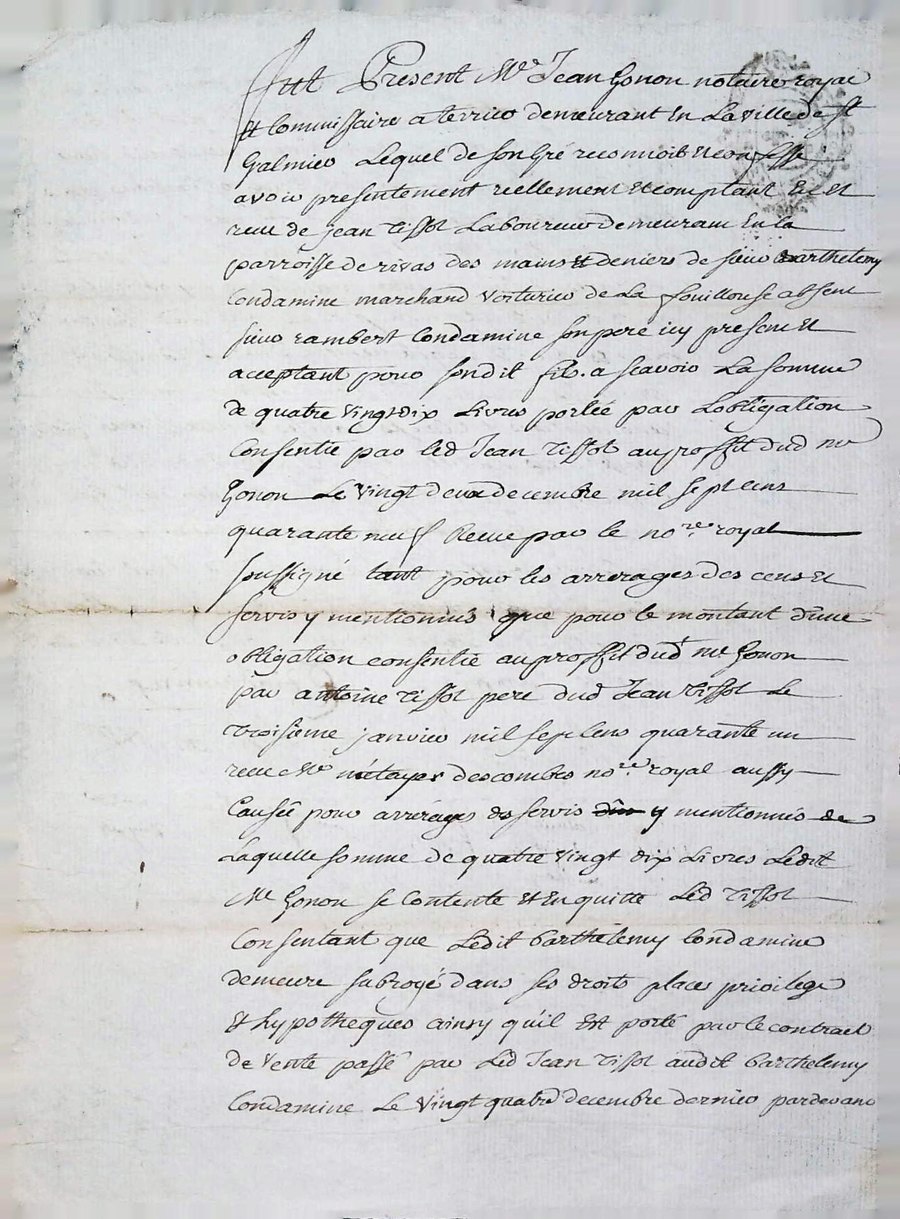 fut Present Me Jean Gonon notaire royal
Et Commissaire a terrier demeurant En La ville de St
Galmier Lequel de son Gré reconnoit et confesse
avoir presentement reellement et comptant Eu et
receu de jean tissot Laboureur demeurant En la
parroisse de rivas des mains et deniers de sieur Barthelemy
Condamine marchand voiturier de La fouillouse absent
sieur rambert Condamine son pere icy present et
acceptant pour sondit fils a scavoir La somme
de quatre vingt dix Livres portée par Lobligation
Consentie par led Jean tissot au proffit dud me
Gonon Le vingt deux decembre mil sept cens
quarante neuf Receue par le nore royal
soussigné tant pour les arrerages des cens et
servis y mentionnés que pour le montant d'une
obligation consentie au proffit dud me Gonon
par antoine tissot pere dud Jean tissot Le
troisieme janvier mil sept cens quarante un
receue Me métayer descombes nore royal aussy
Causée pour arrérages de servis y mentionnés de
Laquelle somme de quatre vingt dix Livres Ledit
Me Gonon se Contente et En quitte Led tissot
Consentant que Ledit Barthelemy Condamine
demeure subrogé dans ses droits places privilege
Et hypotheques ainsy qu'il Est porté par le contract
de vente passé par Led Jean tissot audit Barthelemy
Condamine Le vingt quatre decembre dernier pardevant